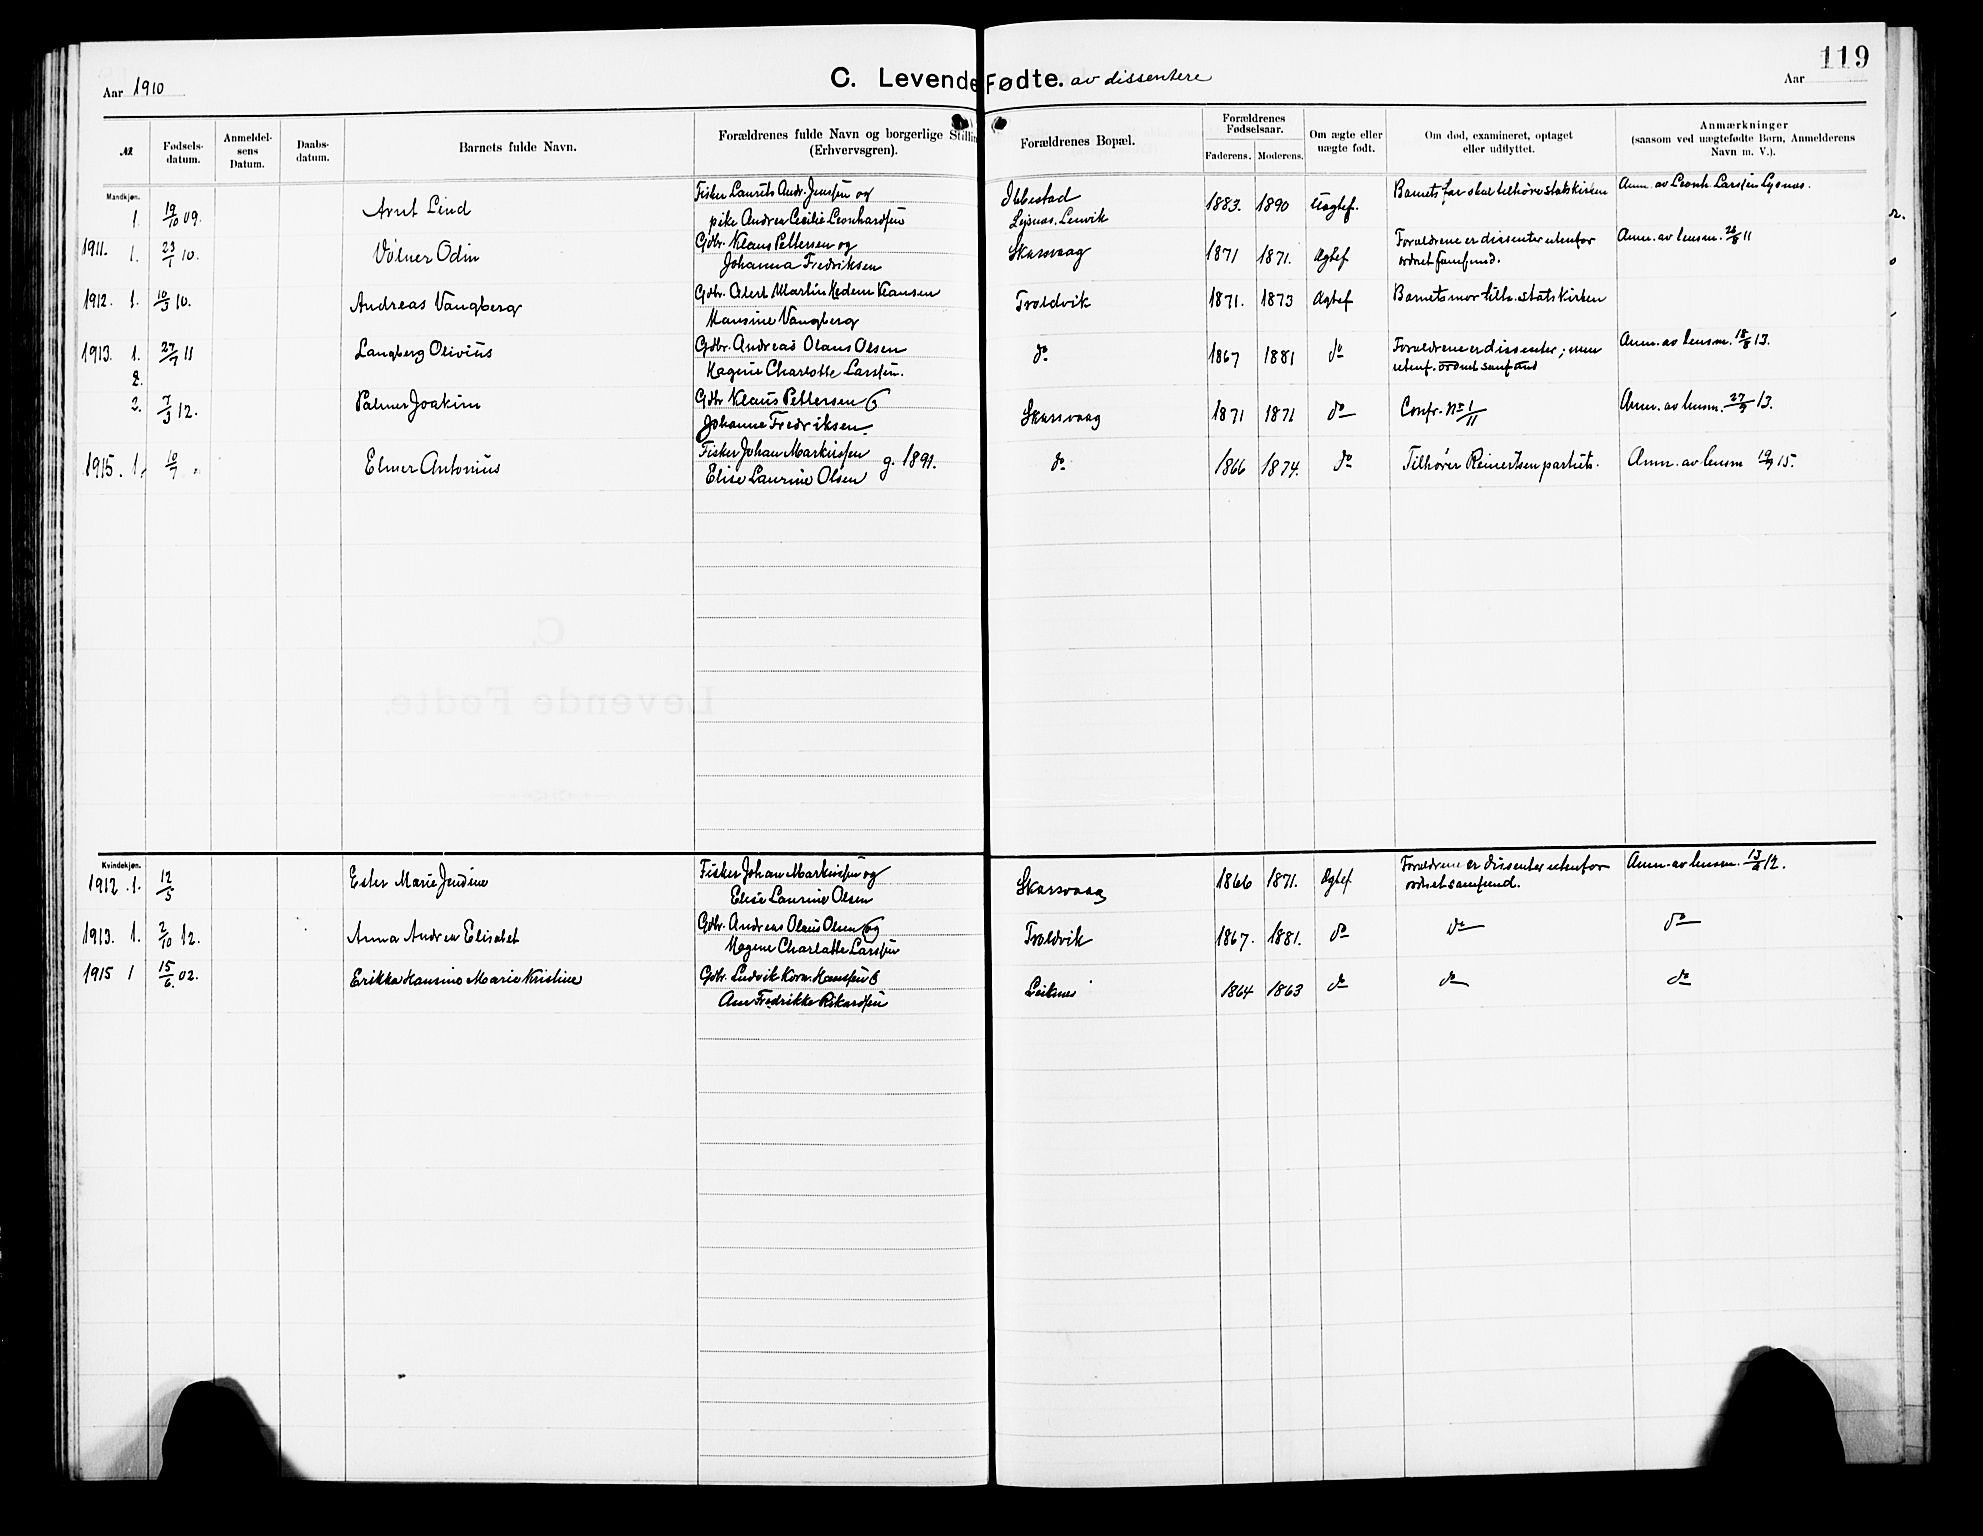 119
Aar 1910 C. Levende Fødte. av dissentere Aar
№ Fødsels-datum. Anmeldel-sens Datum. Daabs-datum. Barnets fulde Navn. Forældrenes fulde Navn og borgerlige Stilling (Erhvervsgren). Forældrenes Bopæl. Forældrenes Fødselsaar. Faderens. Moderens. Om ægte eller uægte født. Om død, examineret, optaget eller udflyttet. Anmærkninger (saasom ved uægtefødte Børn, Anmelderens Navn m. V.).
Mandkjøn.
Fisker Laurits Andr. Jenssen og Ibbestad Barnets far skal tilhøre statskirken Anm. av Leonh. Larssen Lysnes.
1. 19/10 09. Arnt Lind pike Andrea Cecilie Leonhardsen Lysnes, Lenvik 1883. 1890 Uægtef.
1911. 1. 23/1 10. Volner Odin Gdbr. Klaus Pettersen og Skarsvaag 1871 1871. Ægtef Forældrene er dissenter utenfor Anm. av lensm. 26/8 11
Johanna Fredriksen ordnet samfund.
1912. 1. 10/3 10. Andreas Vangberg Gdbr. Edert Martin Hedem Klausen Troldvik 1871. 1873 Ægtef Barnets mor tilh. statskirken
Hansine Vangberg
1913. 1. 27/7 11 Langberg Olivius Gdbr. Andreas Olaus Olsen do 1867 1881 do Forældrene er dissenter; men Anm. av lensm. 18/8 13.
2. Hagine Charlotte Larssen. utenf. ordnet samfund
2. 7/3 12. Palmer Joakim Gdbr Klaus Pettersen og Skarsvaag 1871 1871 do Confr. No 1/11 Anm. av lensm. 27/9 13.
Johanne Fredriksen.
1915. 1. 10/7 Elmer Antonius Fisker Johan Markussen g. 1891. do 1866 1874. do Tilhører Reinertsen partiets. Anm. av lensm 19/9 15.
Elise Laurine Olsen
Kvindekjøn.
1912. 1. 12/5 Ester Marie Jendine Fisker Johan Markussen og Skarsvaag 1866 1871. Ægtef Forældrene er dissenter utenfor Anm. av lensm. 13/8 12.
Elise Laurine Olsen ordnet samfund.
1913. 1. 2/10 12. Anna Andrea Elisabet Gdbr. Andreas Olaus Olsen og Troldvik 1867. 1881. do do do
Hagine Charlotte Larssen
1915 1 15/6. 02. Erikka Hansine Marie Kristine Gdbr. Ludvik Korn. Hanssen & Leiknes 1864 1863 do do do
Ane Fredrikke Rikardsen